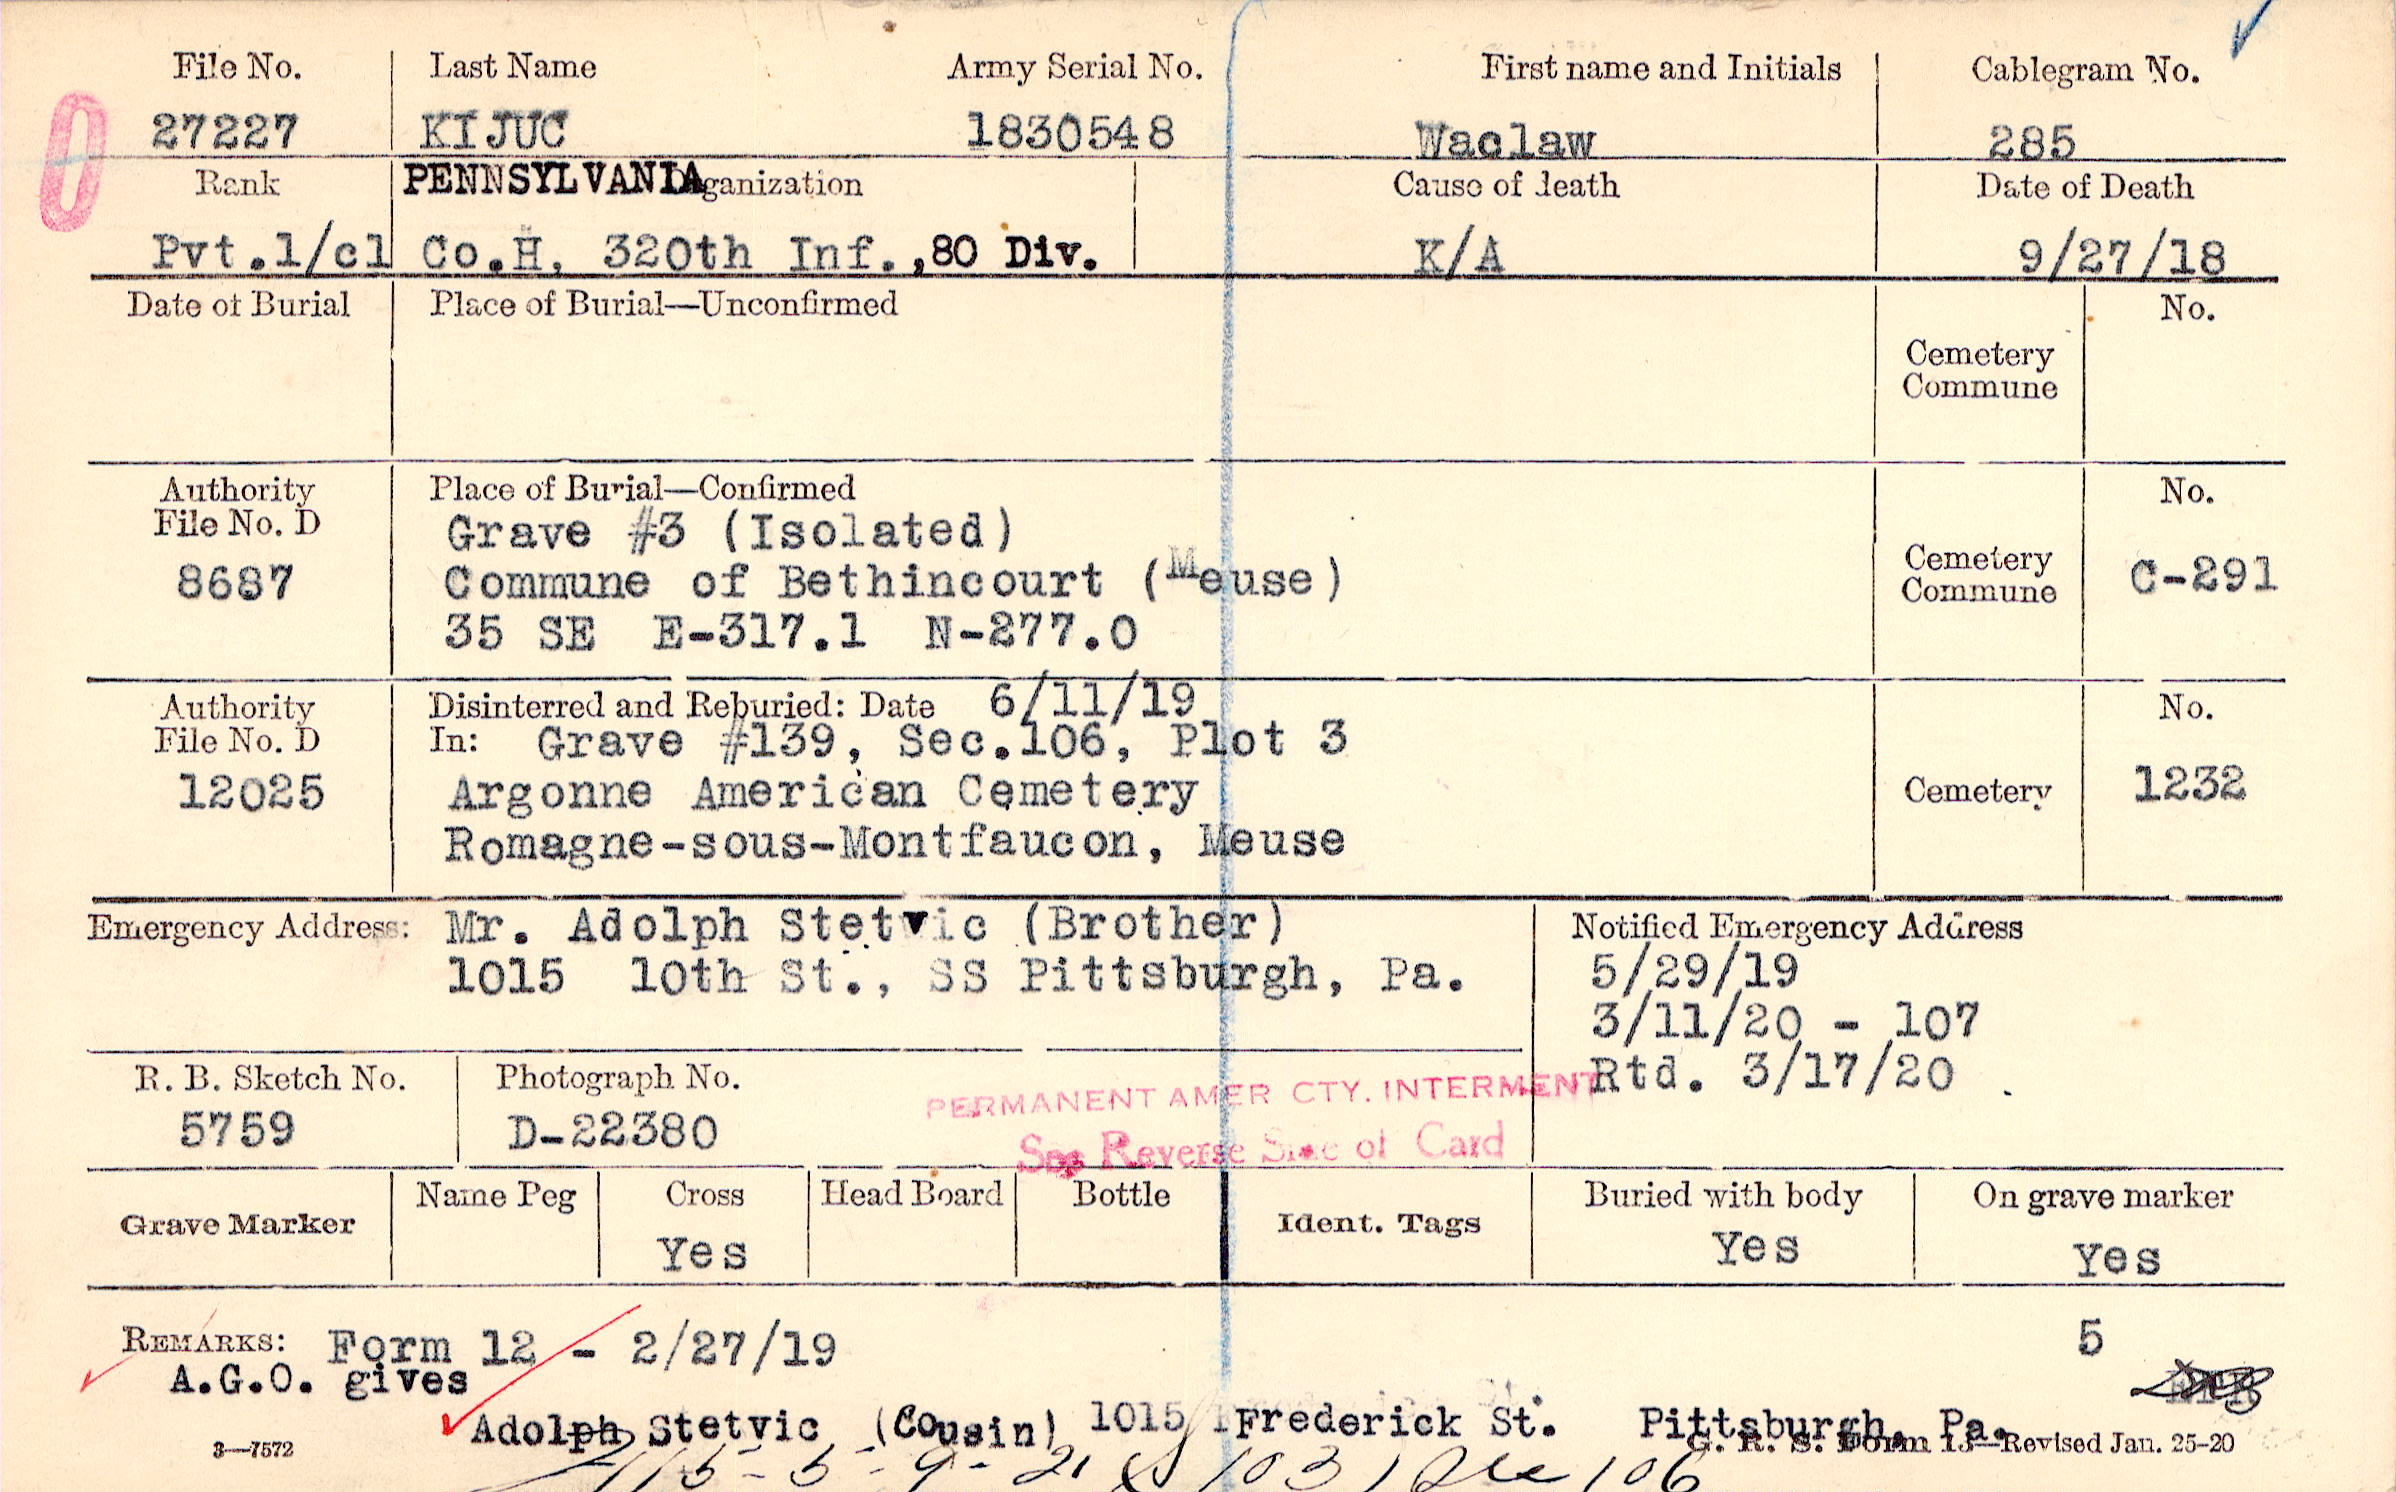 File No. Last Name Army Serial No. First name and Initials Cablegram No.
27227 KIJUC 1830548 Waclaw 285
Rank PENNSYLVANIA Organization Cause of death Date of Death
Pvt.1/cl Co.H, 320th Inf.,80 Div. K/A 9/27/18
Date of Burial Place of Burial—Unconfirmed No.
Cemetery
Commune
Authority Place of Burial—Confirmed No.
File No. D Grave #3 (Isolated)
8687 Commune of Bethincourt (Meuse) Cemetery Commune C-291
35 SE E-317.1 N-277.0
Authority Disinterred and Reburied: Date 6/11/19 No.
File No. D In: Grave #139, Sec.106, Plot 3
12025 Argonne American Cemetery Cemetery 1232
Romagne-sous-Montfaucon, Meuse
Emergency Address: Mr. Adolph Stetvic (Brother) Notified Emergency Address
1015 10th St., SS Pittsburgh, Pa. 5/29/19
3/11/20 - 107
Rtd. 3/17/20
R. B. Sketch No. Photograph No.
5759 D-22380
PERMANENT AMER CTY. INTERMENT
See Reverse Side of Card
Grave Marker Name Peg Cross Head Board Bottle Ident. Tags Buried with body On grave marker
Yes Yes Yes
REMARKS: Form 12 - 2/27/19 5
A.G.O. gives
Adolph Stetvic (Cousin) 1015 Frederick St. Pittsburgh, Pa.
3—7572 G. R. S. Form 13—Revised Jan. 25-20